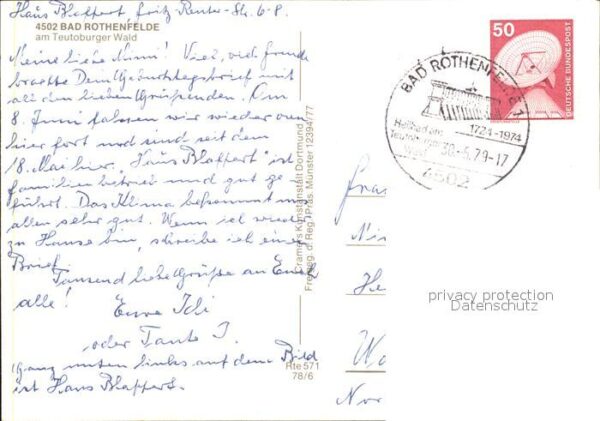 Haus Blappert, Fritz-Reuter-Str. 6-8.
4502 BAD ROTHENFELDE
am Teutoburger Wald
Meine liebe Nanni! Viel, viel Freude
brachte Dein Geburtstagsbrief mit
all den lieben Grüßenden. Am
8. Juni fahren wir wieder von
hier fort und sind seit dem
18. Mai hier. "Haus Blappert" ist
Familienbetrieb und gut ge-
führt. Das Klima bekommt uns
allen sehr gut. Wenn ich wieder
zu Hause bin, schreibe ich einen
Brief.
Tausend liebe Grüße an Euch
alle!
Eure Idi
oder Tante I.
Ganz unten links auf dem Bild
ist Haus Blappert.
Cramers Kunstanstalt Dortmund
Freigeg. d. Reg. Präs. Münster 12394/77
Rte 571
78/6
50
DEUTSCHE BUNDESPOST
BAD ROTHENFELDE 1
Heilbad am
Teutoburger
Wald
1724-1974
30.-5.79-17
4502
privacy protection
Datenschutz